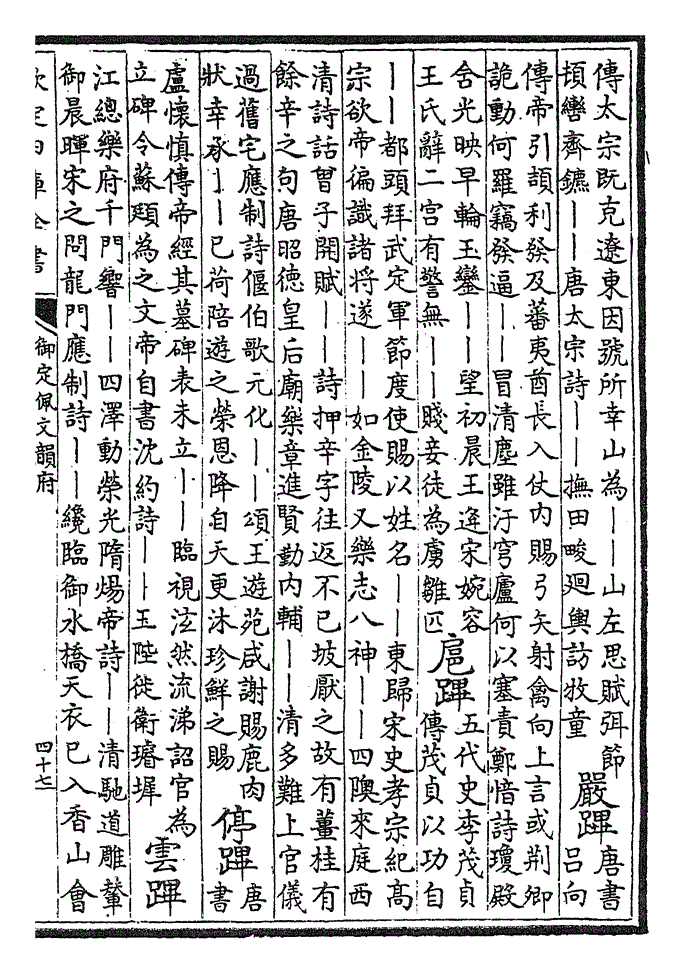 傳太宗既克遼東因號所幸山為丨丨山左思賦弭節
頓轡齊鑣丨丨唐太宗詩丨丨撫田畯廻輿訪牧童
嚴蹕
唐書
呂向
傳帝引頡利發及蕃夷酋長入仗内賜弓矢射禽向上言或荆卿
詭動何羅竊發逼丨丨冒清塵雖汙穹廬何以塞責鄭愔詩瓊殿
含光映早輪玉鑾丨丨望初晨王逢宋婉容
王氏辭二宫有警無丨丨賤妾徒為虜雛匹
扈蹕
五代史李茂貞
傳茂貞以功自
丨丨都頭拜武定軍節度使賜以姓名丨丨東歸宋史孝宗紀髙
宗欲帝徧識諸將遂丨丨如金陵又樂志八神丨丨四隩來庭西
清詩話曽子開賦丨丨詩押辛字往返不已坡厭之故有薑桂有
餘辛之句唐昭德皇后廟樂章進賢勤内輔丨丨清多難上官儀
過舊宅應制詩偃伯歌元化丨丨頌王遊苑咸謝賜鹿肉
狀幸承丨丨已荷陪遊之榮恩降自天更沐珍鮮之賜
停蹕
唐
書
盧懷慎傳帝經其墓碑表未立丨丨臨視泫然流涕詔官為
立碑令蘇頲為之文帝自書沈約詩丨丨玉陛徙衛璿墀
雲蹕
江總樂府千門響丨丨四澤動榮光隋煬帝詩丨丨清馳道雕輦
御晨暉宋之問龍門應制詩丨丨纔臨御水橋天衣已入香山會
欽定四庫全書
御定佩文韻府
四十七